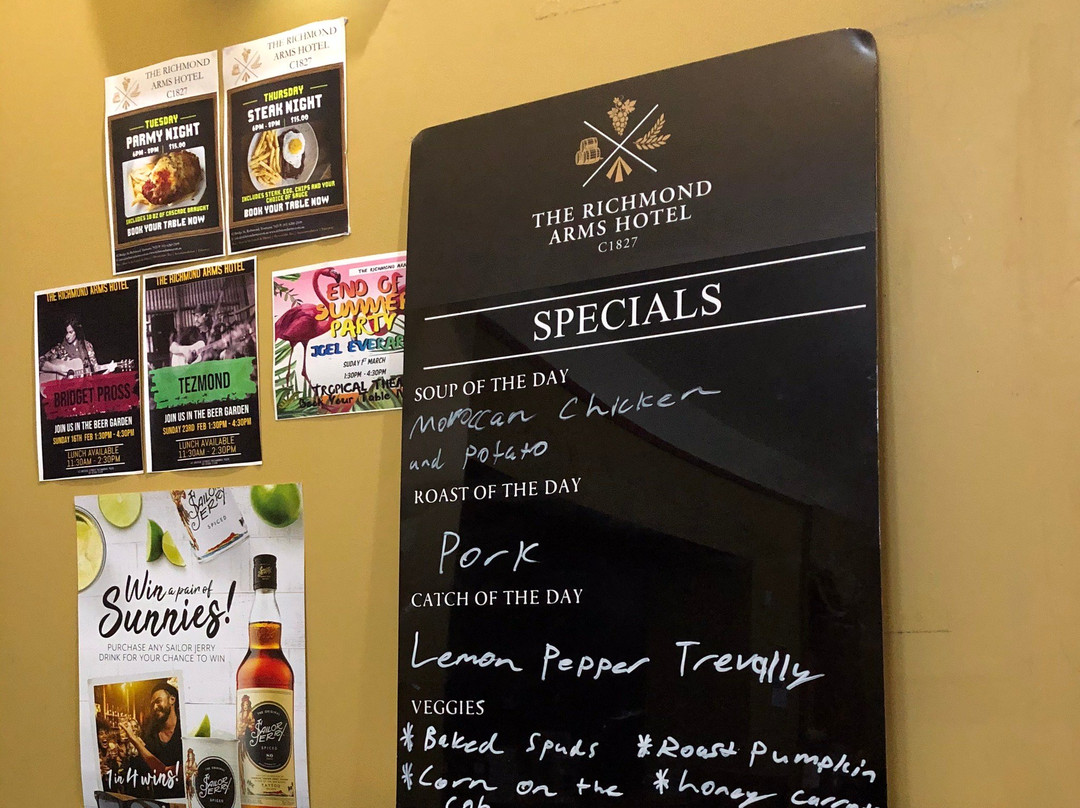 THE RICHMOND
ARMS HOTEL
C1827
TUESDAY
PARMY NIGHT
6PM - 8PM | $15.00
INCLUDES 10 OZ OF CASCADE DRAUGHT
BOOK YOUR TABLE NOW
THE RICHMOND
ARMS HOTEL
C1827
THURSDAY
STEAK NIGHT
6PM - 8PM | $15.00
INCLUDES STEAK, EGG, CHIPS AND YOUR
CHOICE OF SAUCE
BOOK YOUR TABLE NOW
THE RICHMOND ARMS HOTEL
BRIDGET PROSS
JOIN US IN THE BEER GARDEN
SUNDAY 16TH FEB 1:30PM - 4:30PM
LUNCH AVAILABLE
11:30AM - 2:30PM
THE RICHMOND ARMS HOTEL
TEZMOND
JOIN US IN THE BEER GARDEN
SUNDAY 23RD FEB 1:30PM - 4:30PM
LUNCH AVAILABLE
11:30AM - 2:30PM
THE RICHMOND ARM
END OF
SUMMER
PARTY
JOEL EVERAR
SUDAY 1ST MARCH
1:30PM - 4:30PM
TROPICAL THE
Book Your Table
Win a pair of
Sunnies!
PURCHASE ANY SAILOR JERRY
DRINK FOR YOUR CHANCE TO WIN
1 in 4 wins!
SAILOR
JERRY
SPICED
SAILOR
JERRY
SPICED
SAILOR
JERRY
THE RICHMOND
ARMS HOTEL
C1827
SPECIALS
SOUP OF THE DAY
Moroccan Chicken
and Potato
ROAST OF THE DAY
Pork
CATCH OF THE DAY
Lemon Pepper Trevally
VEGGIES
* Baked Spuds * Roast Pumpkin
* Corn on the * honey carro
cob